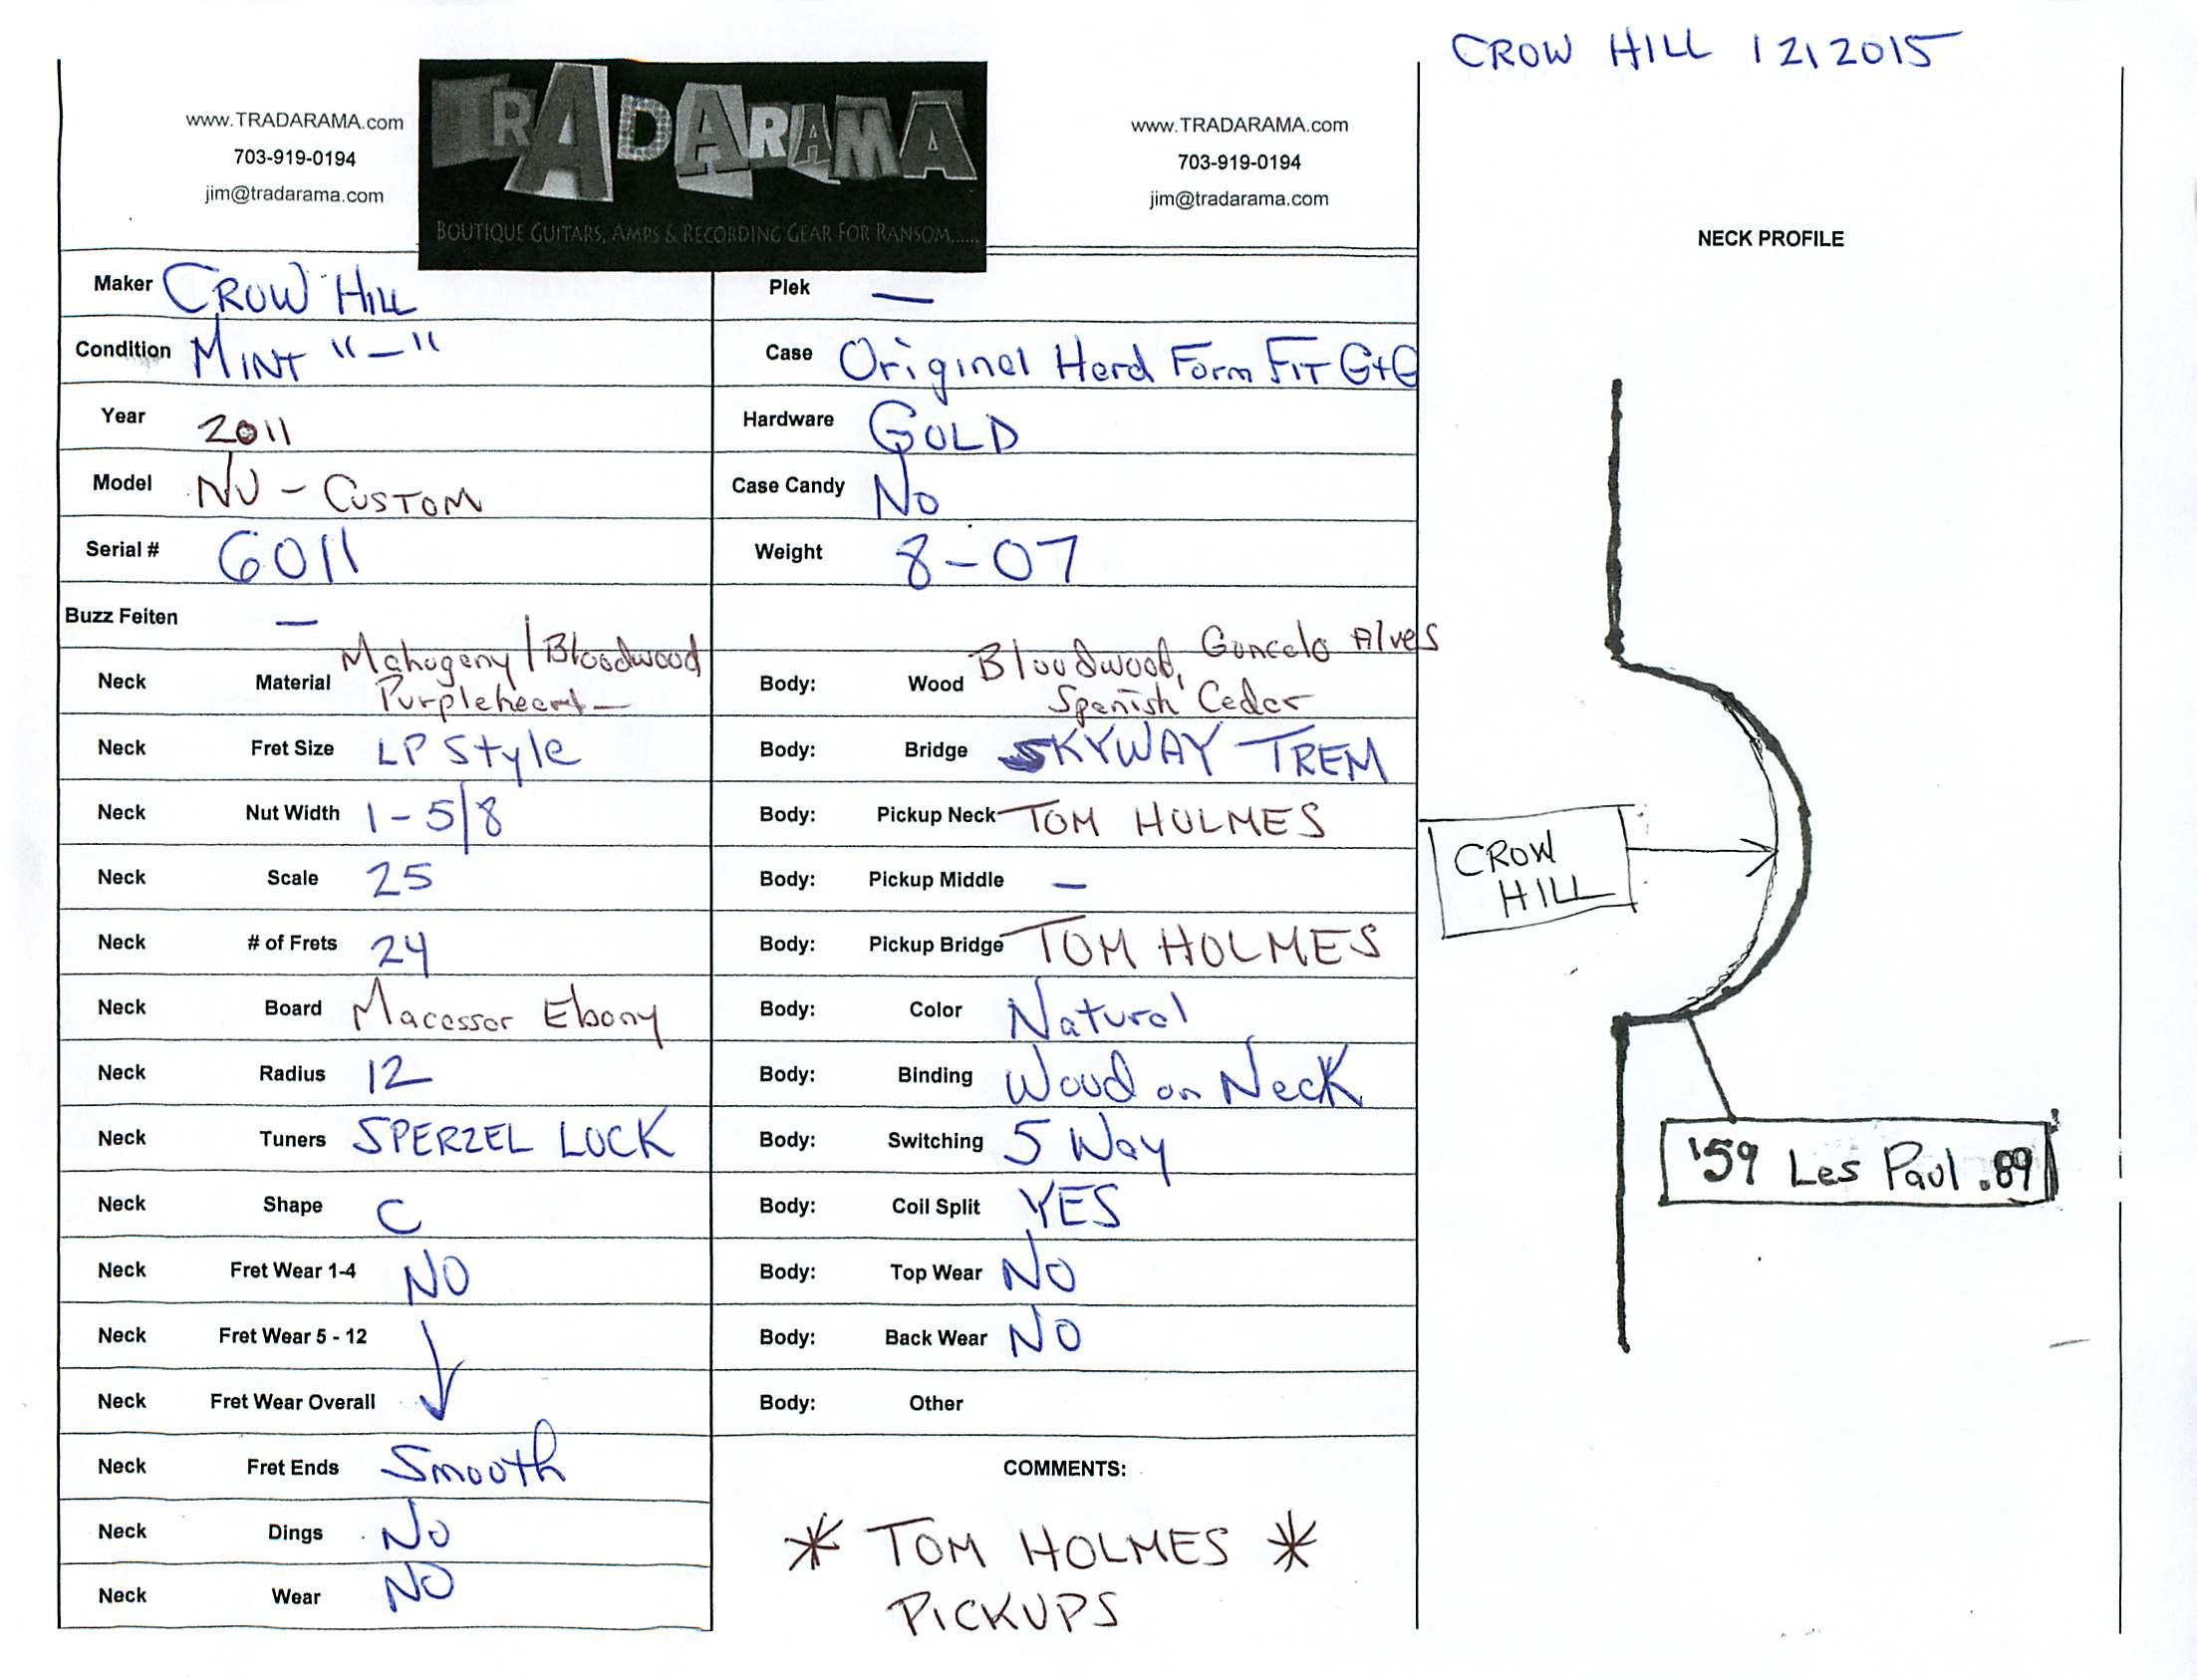 CROW HILL 12/2015
www.TRADARAMA.com
703-919-0194
jim@tradarama.com
TRADARAMA
BOUTIQUE GUITARS, AMPS & RECORDING GEAR FOR RANSOM......
www.TRADARAMA.com
703-919-0194
jim@tradarama.com
Maker CROW HILL
Condition MINT "-"
Year 2011
Model NU - CUSTOM
Serial # 6011
Buzz Feiten —
Neck Material Mahogeny / Bloodwood
Purpleheart —
Neck Fret Size LP Style
Neck Nut Width 1-5/8
Neck Scale 25
Neck # of Frets 24
Neck Board Macassar Ebony
Neck Radius 12
Neck Tuners SPERZEL LOCK
Neck Shape C
Neck Fret Wear 1-4 NO
Neck Fret Wear 5 - 12
Neck Fret Wear Overall
Neck Fret Ends Smooth
Neck Dings No
Neck Wear NO
Plek —
Case Original Hard Form FIT G+G
Hardware GOLD
Case Candy No
Weight 8-07
Body: Wood Bloodwood, Goncalo Alves
Spanish Cedar
Body: Bridge SKYWAY TREM
Body: Pickup Neck TOM HOLMES
Body: Pickup Middle —
Body: Pickup Bridge TOM HOLMES
Body: Color Natural
Body: Binding Wood on Neck
Body: Switching 5 Way
Body: Coil Split YES
Body: Top Wear NO
Body: Back Wear NO
Body: Other
COMMENTS:
* TOM HOLMES *
PICKUPS
NECK PROFILE
CROW
HILL
'59 Les Paul .89